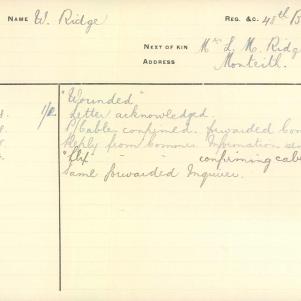 NAME W. Ridge REG. &C. 48th B
NEXT OF KIN Mrs L. M. Ridg
ADDRESS Monteith.
"Wounded"
Letter acknowledged.
P/Cable confirmed. forwarded Com
Reply from Commee. Information sen
" " " confirming cabl
Same forwarded Inquirer.